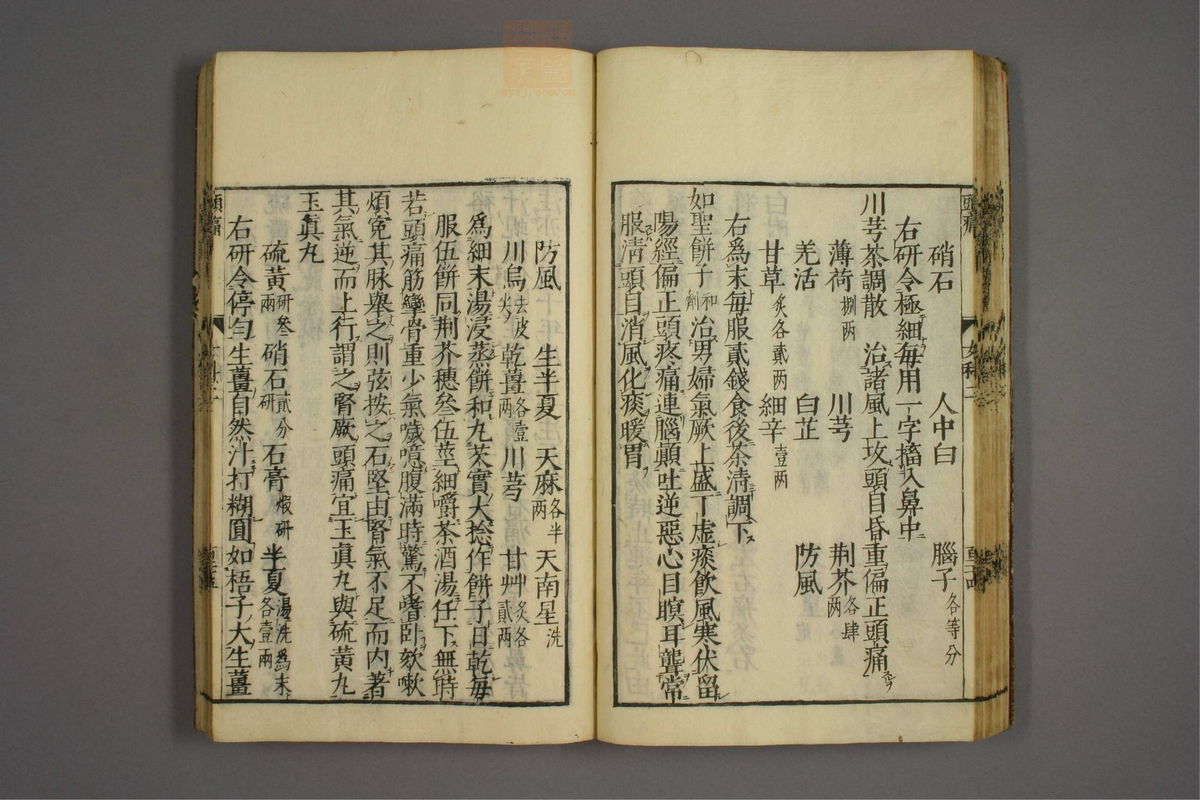 硝石 人中白 腦子各等分
右研令極細每用一字搐入鼻中
川芎茶調散 治諸風上攻頭目昏重偏正頭痛
薄荷捌两 川芎 荆芥各肆两
羌活 白芷 防風
甘草炙各貳两 細辛壹两
右爲末每服貳錢食後茶清調下
如聖餅子和劑 治男婦氣厥上盛下虛痰飲風寒伏留
陽經偏正頭疼痛連腦顚吐逆惡心目瞑耳聾常
服清頭目消風化痰暖胃
防風 生半夏 天麻各半两 天南星洗
川烏去皮尖 乾薑各壹两 川芎 甘艸炙各貳两
爲細末湯浸蒸餅和丸芡實大捻作餅子日乾每
服伍餅同荆芥穗叁伍莖細嚼茶酒湯任下無時
若頭痛筋攣骨重少氣噦噫腹滿時驚不嗜卧欬嗽
煩冤其脉舉之則弦按之石堅由腎氣不足而内著
其氣逆而上行謂之腎厥頭痛宜玉眞丸與硫黄丸
玉眞丸
硫黄研叁两 硝石貳分研 石膏煅研 半夏湯洗爲末各壹两
右研令停勻生薑自然汁打糊圓如梧子大生薑
頭痛